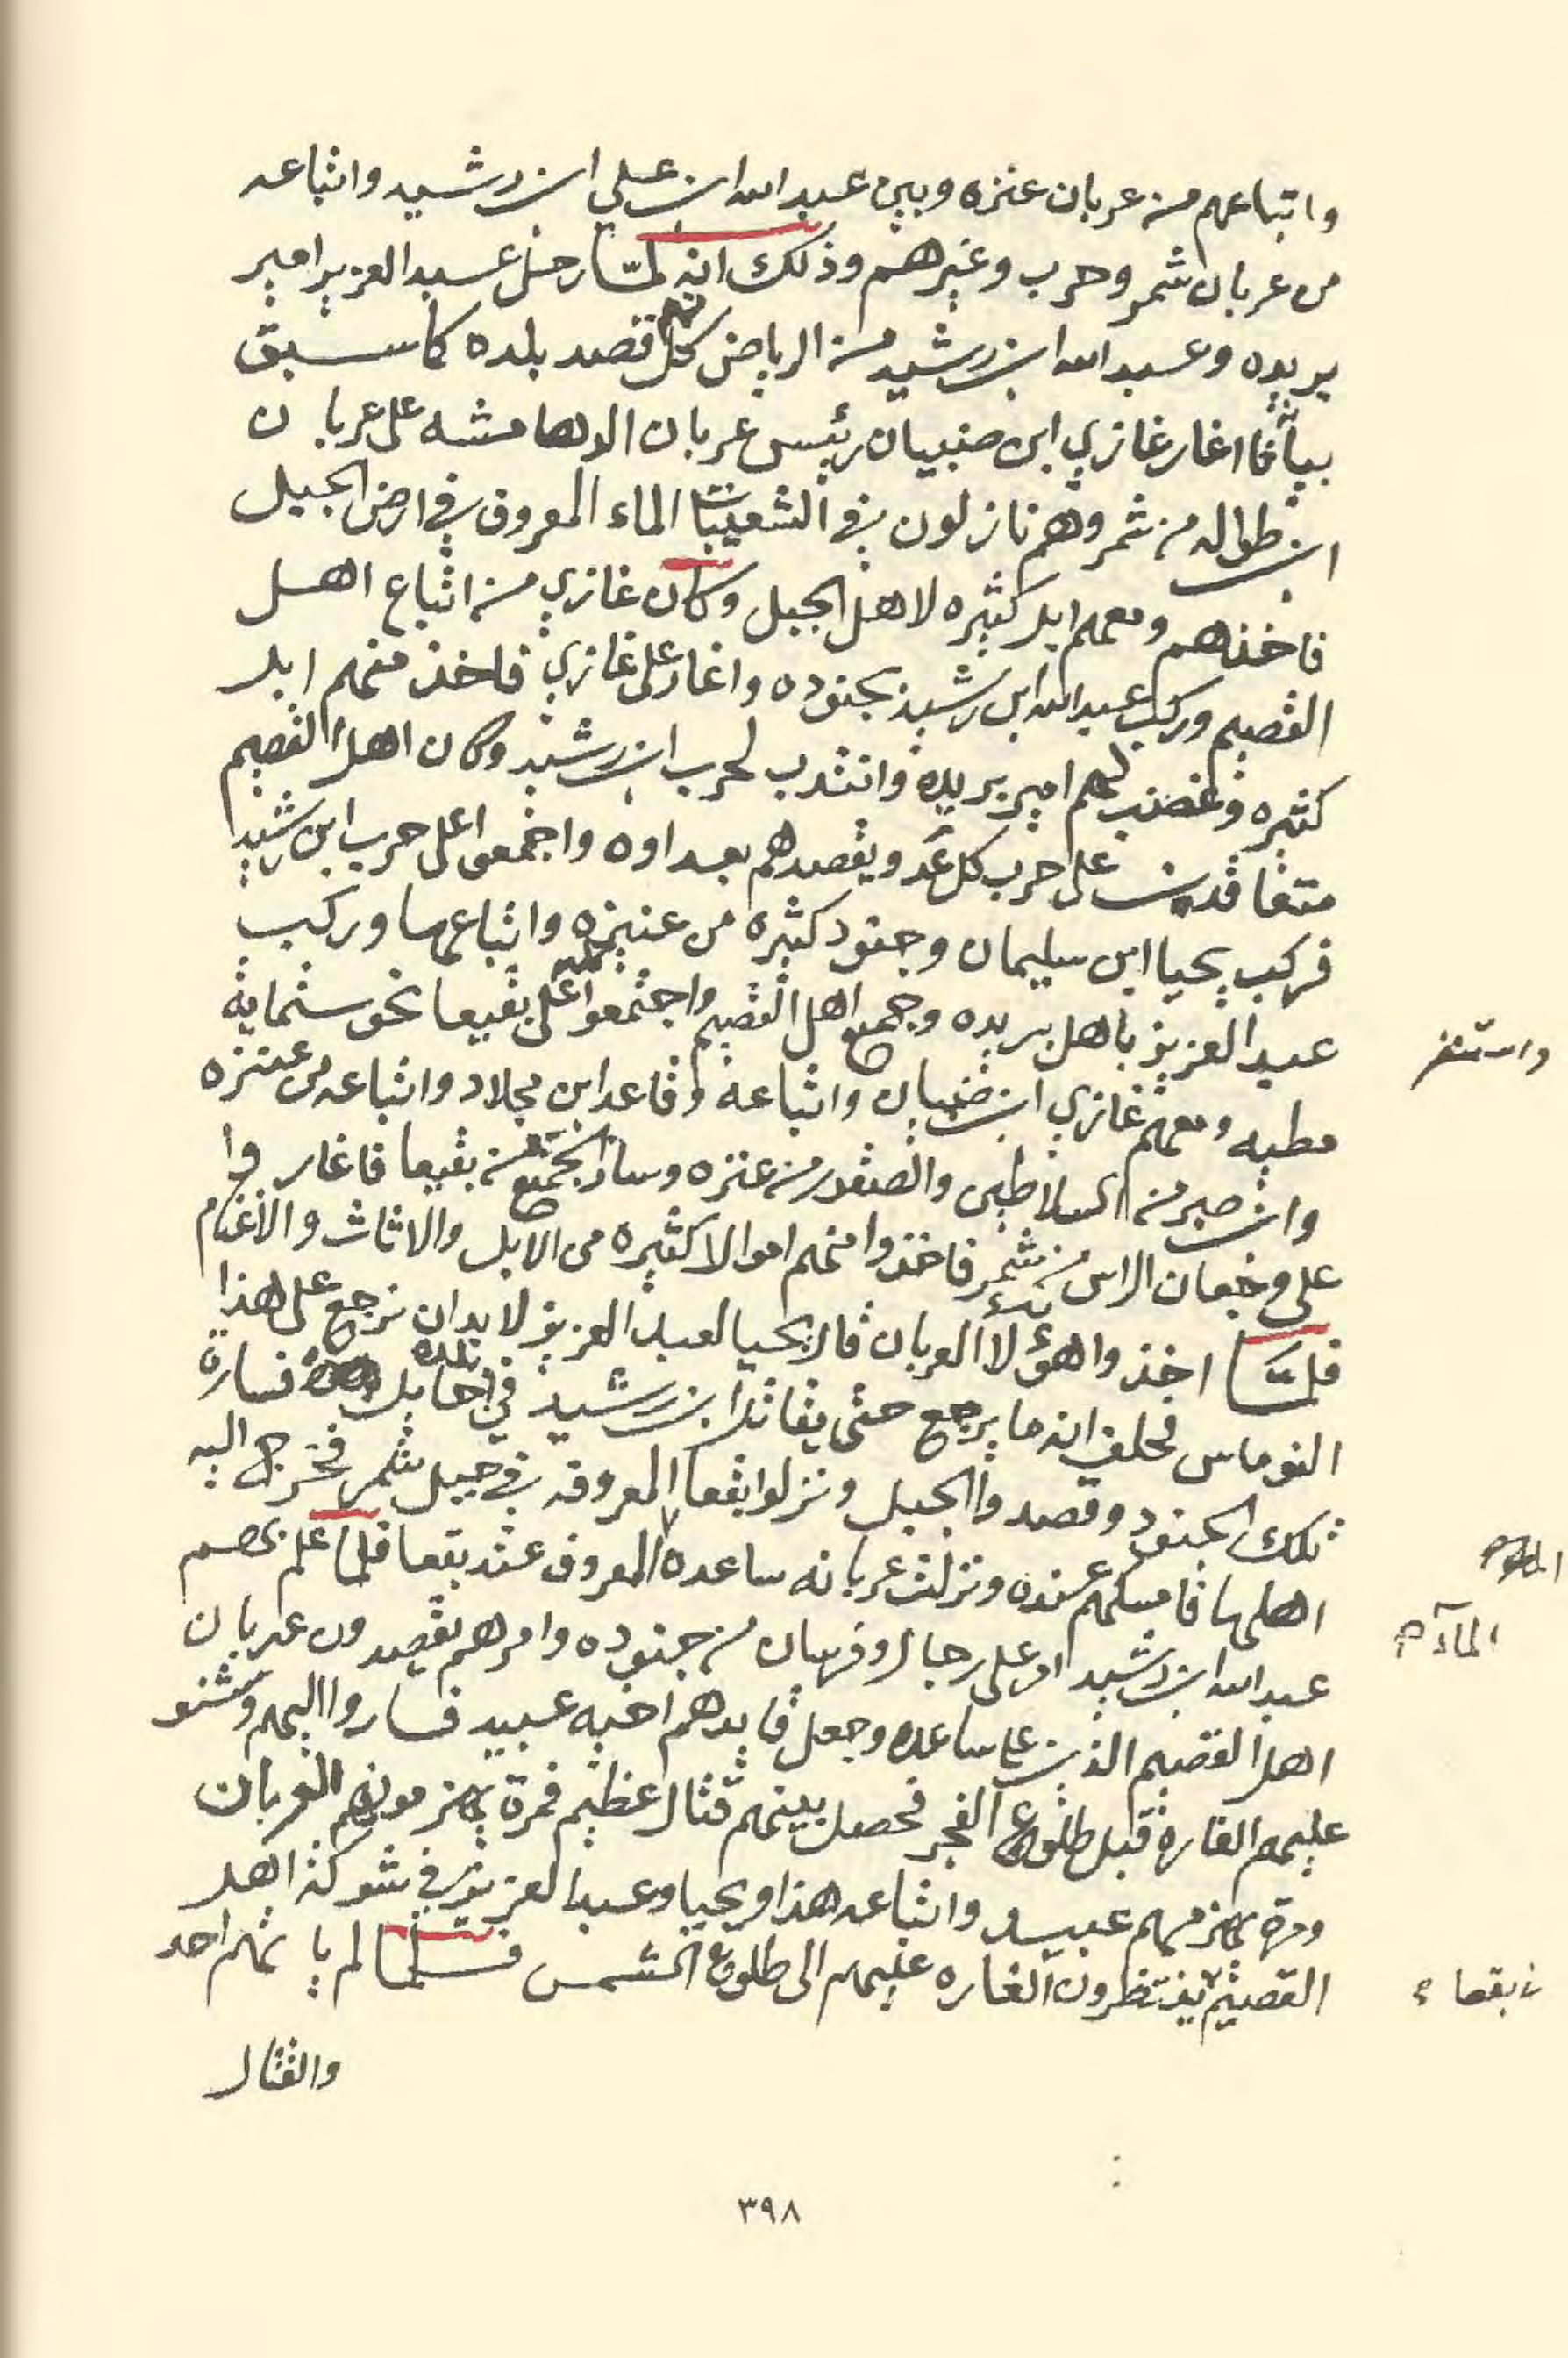 واتباعهم من عربان عنزه وبين عبدالله ابن علي ابن رشيد واتباعه
من عربان شمر وحرب وغيرهم وذلك انه لمّا رحل عبدالعزيز امير
بريده وعبدالله ابن رشيد من الرياض كل منهم قصد بلده كما سبق
بيانه اغار غازي ابن ضبيان رئيس عربان الدهامشه على عربان
ابن طواله من شمر وهم نازلون في الشعيبات الماء المعروف في ارض الجبل
فاخذهم ومعهم ابل كثيره لاهل الجبل وكان غازي من اتباع اهل
القصيم وركب عبدالله ابن رشيد بجنوده واغار على غازي فاخذ منهم ابل
كثيره وغضب لهم امير بريده وانتدب لحرب ابن رشيد وكان اهل القصيم
متعاقدين على حرب كل عدو يقصدهم بعداوه واجمعوا على حرب ابن رشيد
فركب يحيا ابن سليمان وجنود كثيره من عنيزه واتباعها وركب
عبدالعزيز باهل بريده وجميع اهل القصيم واجتمعوا على بقيعا نحو ستماية
واستنفر
مطيه ومعهم غازي ابن ضبيان واتباعه وقاعد ابن مجلاد واتباعه من عنزه
وابن صبر من السلاطين والصقور من عنزه وسار الجميع من بقيعا فاغاروا
على وجعان الراس من شمر فاخذوا منهم اموالا كثيره من الابل والاثاث والاغنام
فلمّا اخذوا هؤلاء العربان قال يحيا لعبد العزيز لابد ان نرجع على هذا
النوماس فحلف انه ما يرجع حتى يقاتل ابن رشيد في بلده فسارة
تلك الجنود وقصدوا الجبل ونزلوا بقعا المعروفه في جبل شمر فخرج اليه
اهلها فامسكهم عنده ونزلت عربانه ساعده المعروف عند بقعا فلما علم بهم
المآء م
عبدالله ابن رشيد امر على رجال وفرسان من جنوده وامرهم يقصدون عربان
اهل القصيم الذين على ساعده وجعل قايدهم اخيه عبيد فساروا اليهم وشنو
عليهم الغاره قبل طلوع الفجر فحصل بينهم قتال عظيم فمرة يهزمونهم العربان
ومره يهزمهم عبيد واتباعه هذا ويحيا وعبدالعزيز في شوكة اهل
القصيم ينتظرون الغاره عليهم الى طلوع الشمس فلما لم ياتهم احد
في بقعاء
والقتال
٣٩٨